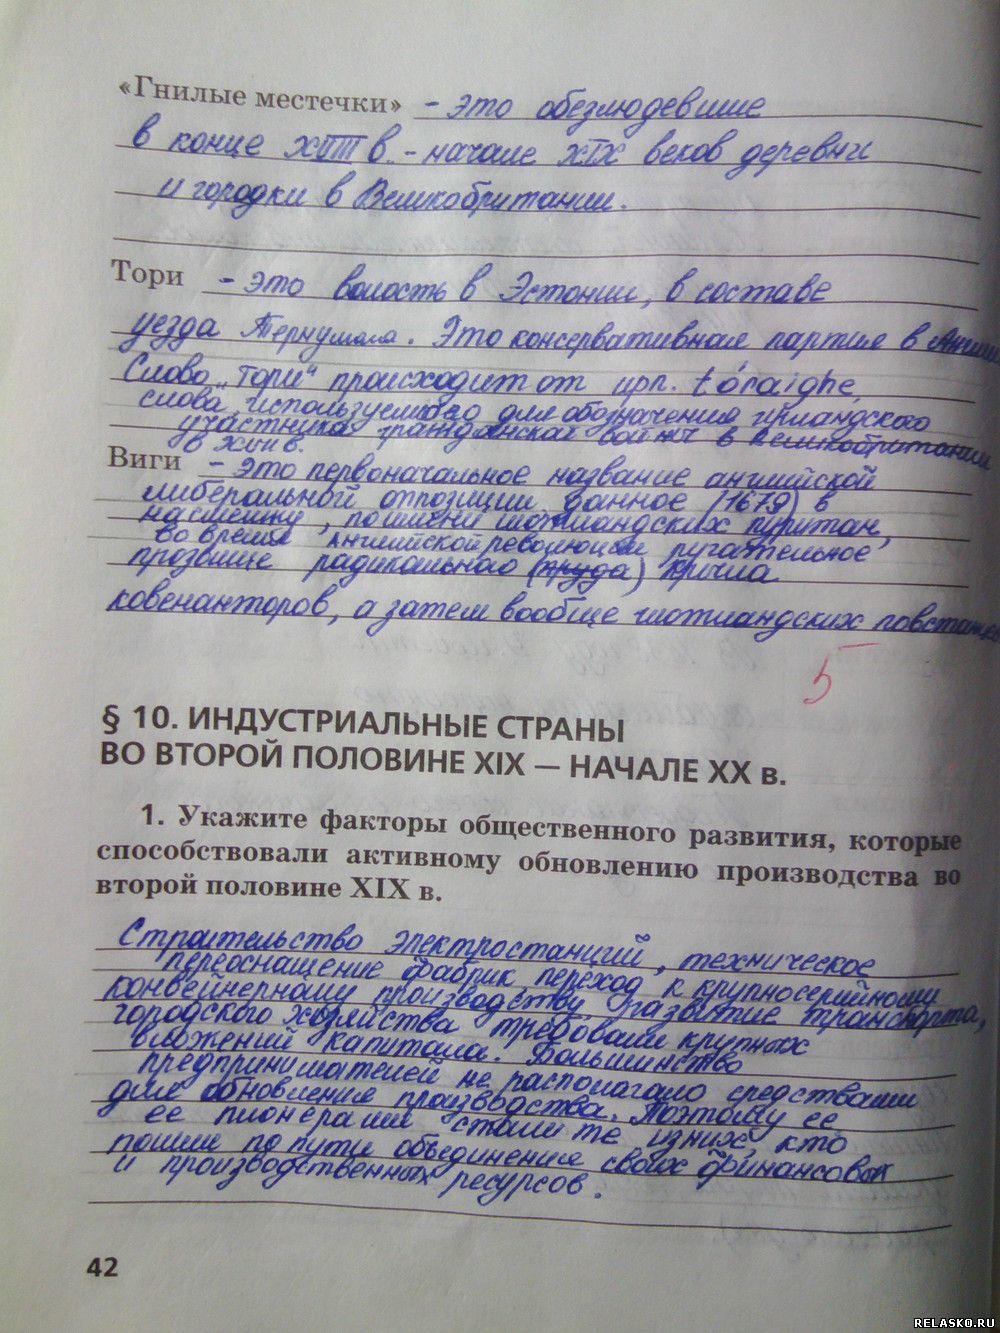 «Гнилые местечки» - это обезлюдевшие
в конце XVIII в. - начале XIX веков деревни
и городки в Великобритании.
Тори - это волость в Эстонии, в составе
уезда Пернумаа. Это консервативная партия в Англии
Слово "тори" происходит от ирл. tóraighe,
слова, используемого для обозначения ирландского
участника гражданской войны в Великобритании
в XVII в.
Виги - это первоначальное название английской
либеральной оппозиции данное (1679) в
насмешку, по имени шотландских пуритан,
во время английской революции ругательное
прозвище радикального (труда) крыла
ковенанторов, а затем вообще шотландских повстанцев
5
§ 10. ИНДУСТРИАЛЬНЫЕ СТРАНЫ
ВО ВТОРОЙ ПОЛОВИНЕ XIX — НАЧАЛЕ XX в.
1. Укажите факторы общественного развития, которые
способствовали активному обновлению производства во
второй половине XIX в.
Строительство электростанций, техническое
переоснащение фабрик, переход к крупносерийному
конвейерному производству, развитие транспорта,
городского хозяйства требовали крупных
вложений капитала. Большинство
предпринимателей не располагало средствами
для обновления производства. Поэтому ее
ее пионерами стали те из них, кто
пошли по пути объединения своих финансовых
и производственных ресурсов.
42
RELASKO.RU